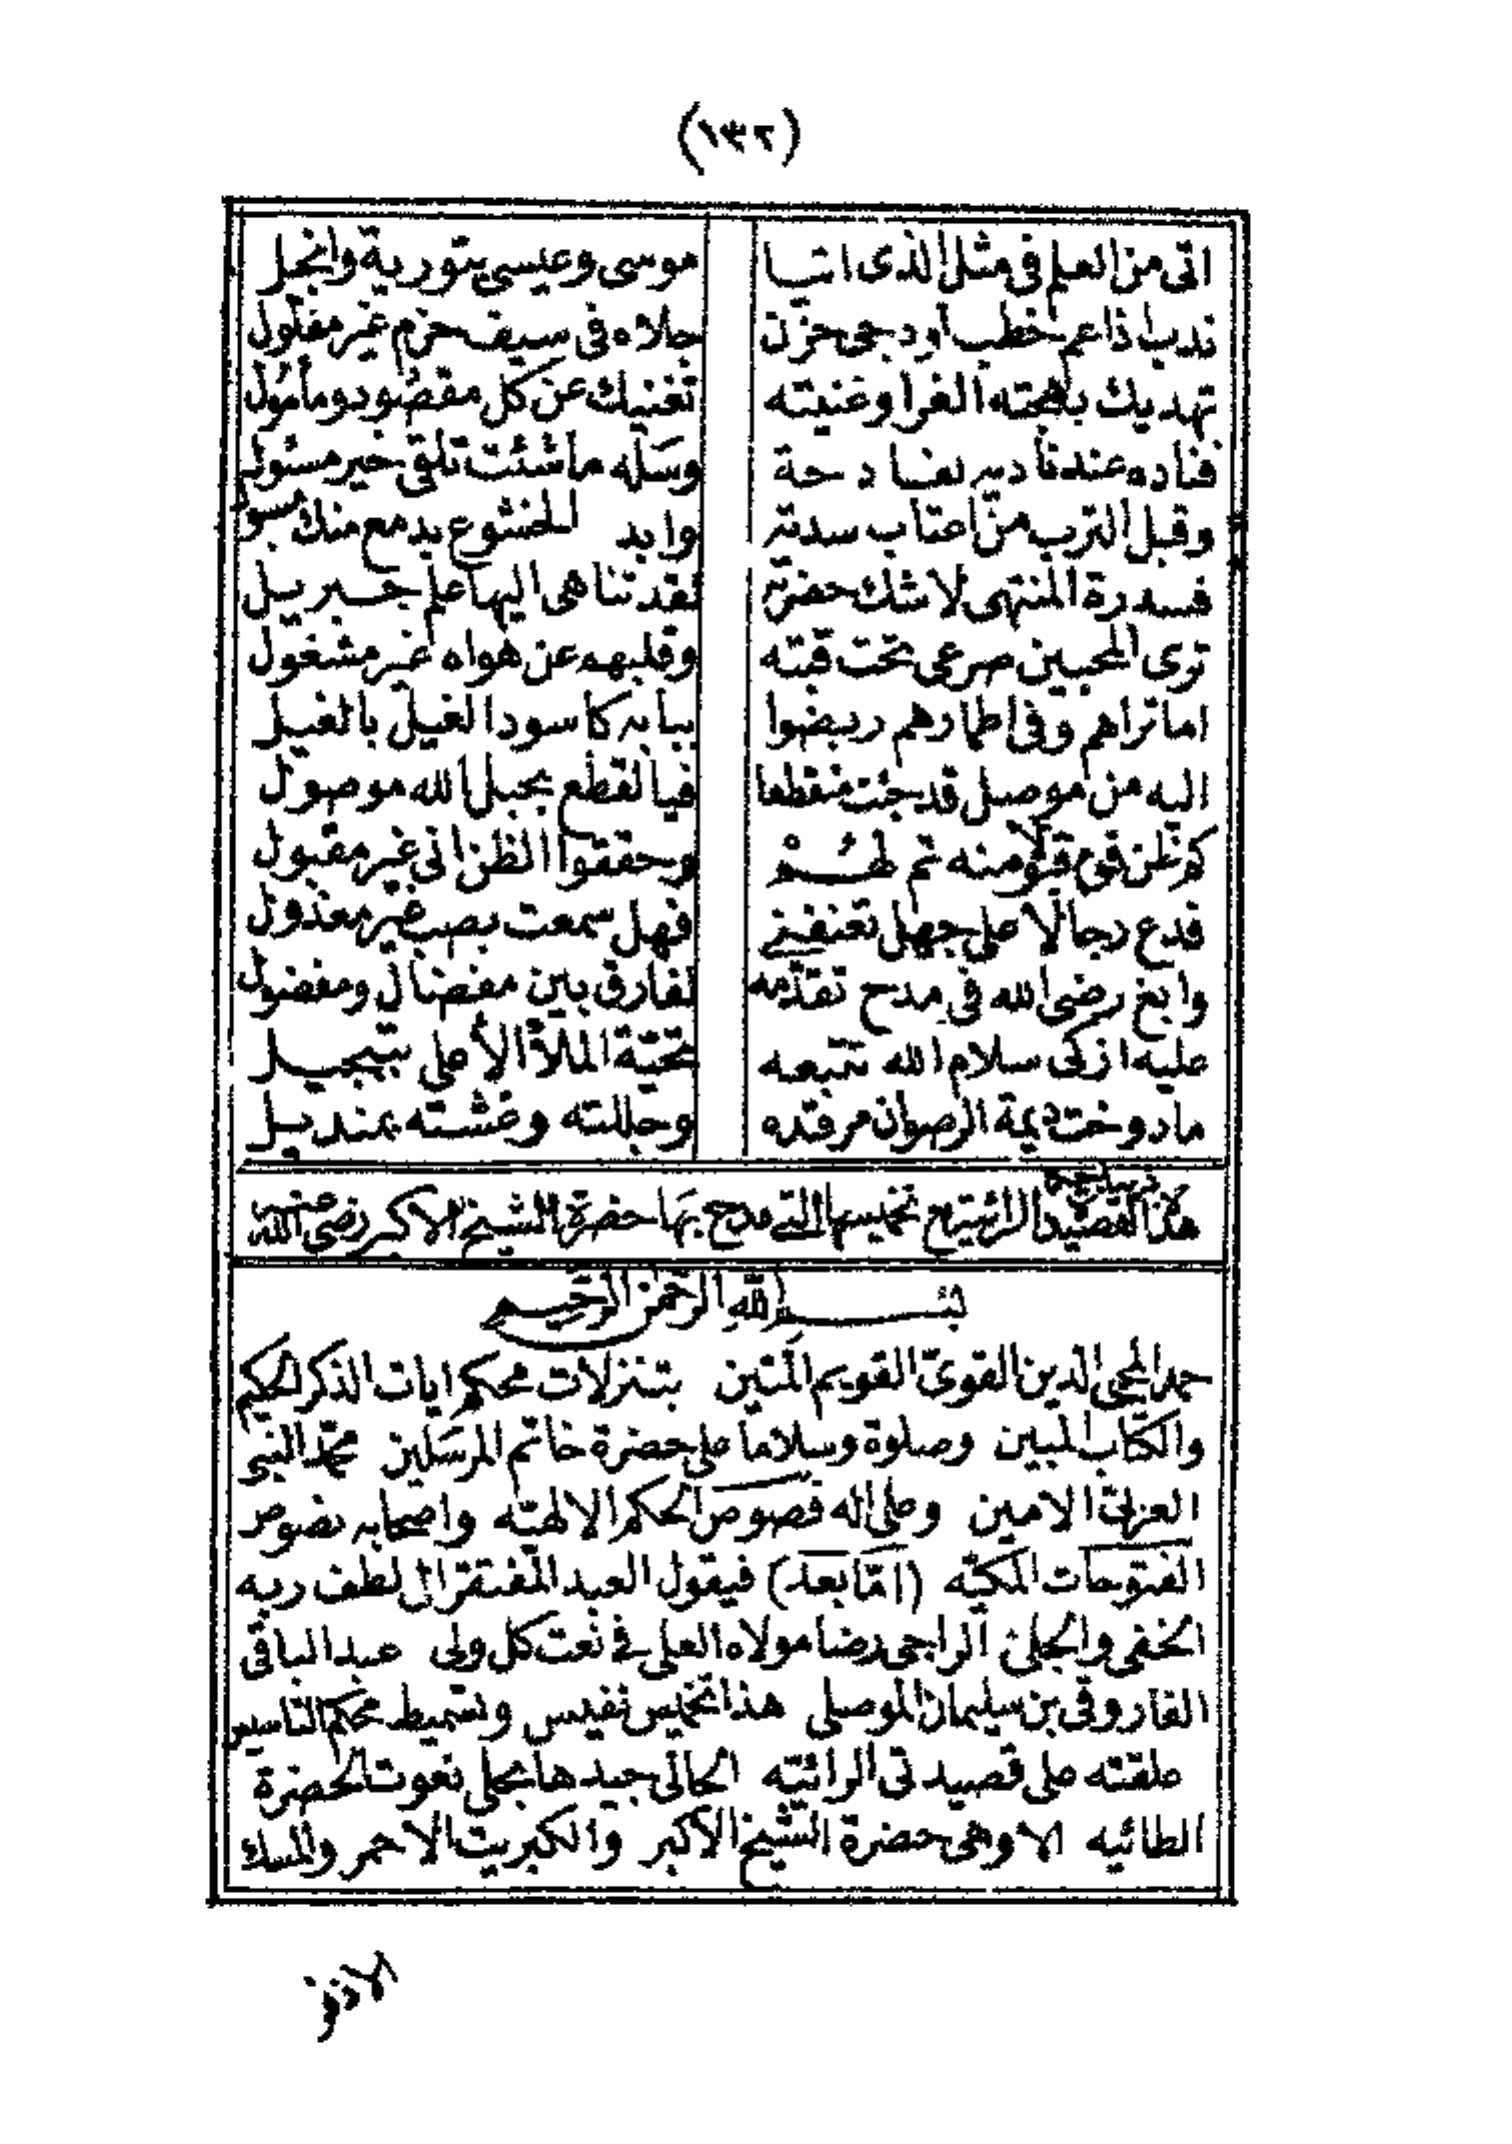 (١٣٢)
اتى من العلم فى مثل الذى اتيا موسى وعيسى بتورية وانجيل
ندب اذا عم خطب او دجى حزن جلاه فى سيف حزم غير مفلول
تهديك بهجته الغرا وغنيته تغنيك عن كل مقصود ومأمول
فناده عند ناديه لفادحة وسله ما شئت تلق خير مسئول
وقبل الترب من اعتاب سدته وابد الخشوع بدمع منك مسبول
فسدرة المنتهى لا شك حضرته لقد تناهى اليها علم جبريل
ترى المحبين صرعى تحت قبته وقلبهم عن هواه غير مشغول
اما تراهم وفى اطمارهم ربضوا ببابه كاسود الغيل بالغيل
اليه من موصل قد جئت منقطعا فيا لقطع بحبل الله موصول
كم ظن قوم قلّامنه تم لهم وحققوا الظن انى غير مقبول
فدع رجالا على جهل تعنفنى فهل سمعت بصب غير معذول
وابغ رضى الله فى مدح تقدمه لفارق بين مفضال ومفضول
عليه ازكى سلام الله تتبعه تحيّة الملأ الأعلى بتبجيل
ما دوخت ديمة الرضوان مرقده وجللته وغشته بمنديل
هذا القصيد الرائية مع تخميسها التى مدح بها حضرة الشيخ الاكبر رضى الله عنه
بسم الله الرحمن الرحيم
حمدا لمحيى الدين القوىّ القويم المتين بتنزلات محكم ايات الذكر الحكيم
والكتاب المبين وصلوة وسلاما على حضرة خاتم المرسلين محمّد النبى
العربىّ الامين وعلى اله فصوص الحكم الالهيّه واصحابه نصوص
الفتوحات المكيّه (امّا بعد) فيقول العبد المفتقر الى لطف ربه
الخفى والجلىّ الراجى رضا مولاه العلى فى نعت كل ولى عبد الباقى
الفاروقى بن سليمان الموصلى هذا تخميس نفيس وتسميط محكم التاسيس
علقته على قصيدتى الرائيّه الحالى جيدها بحلى نعوت الحضرة
الطائيه الا وهى حضرة الشيخ الاكبر والكبريت الاحمر والمسك
الاذفر